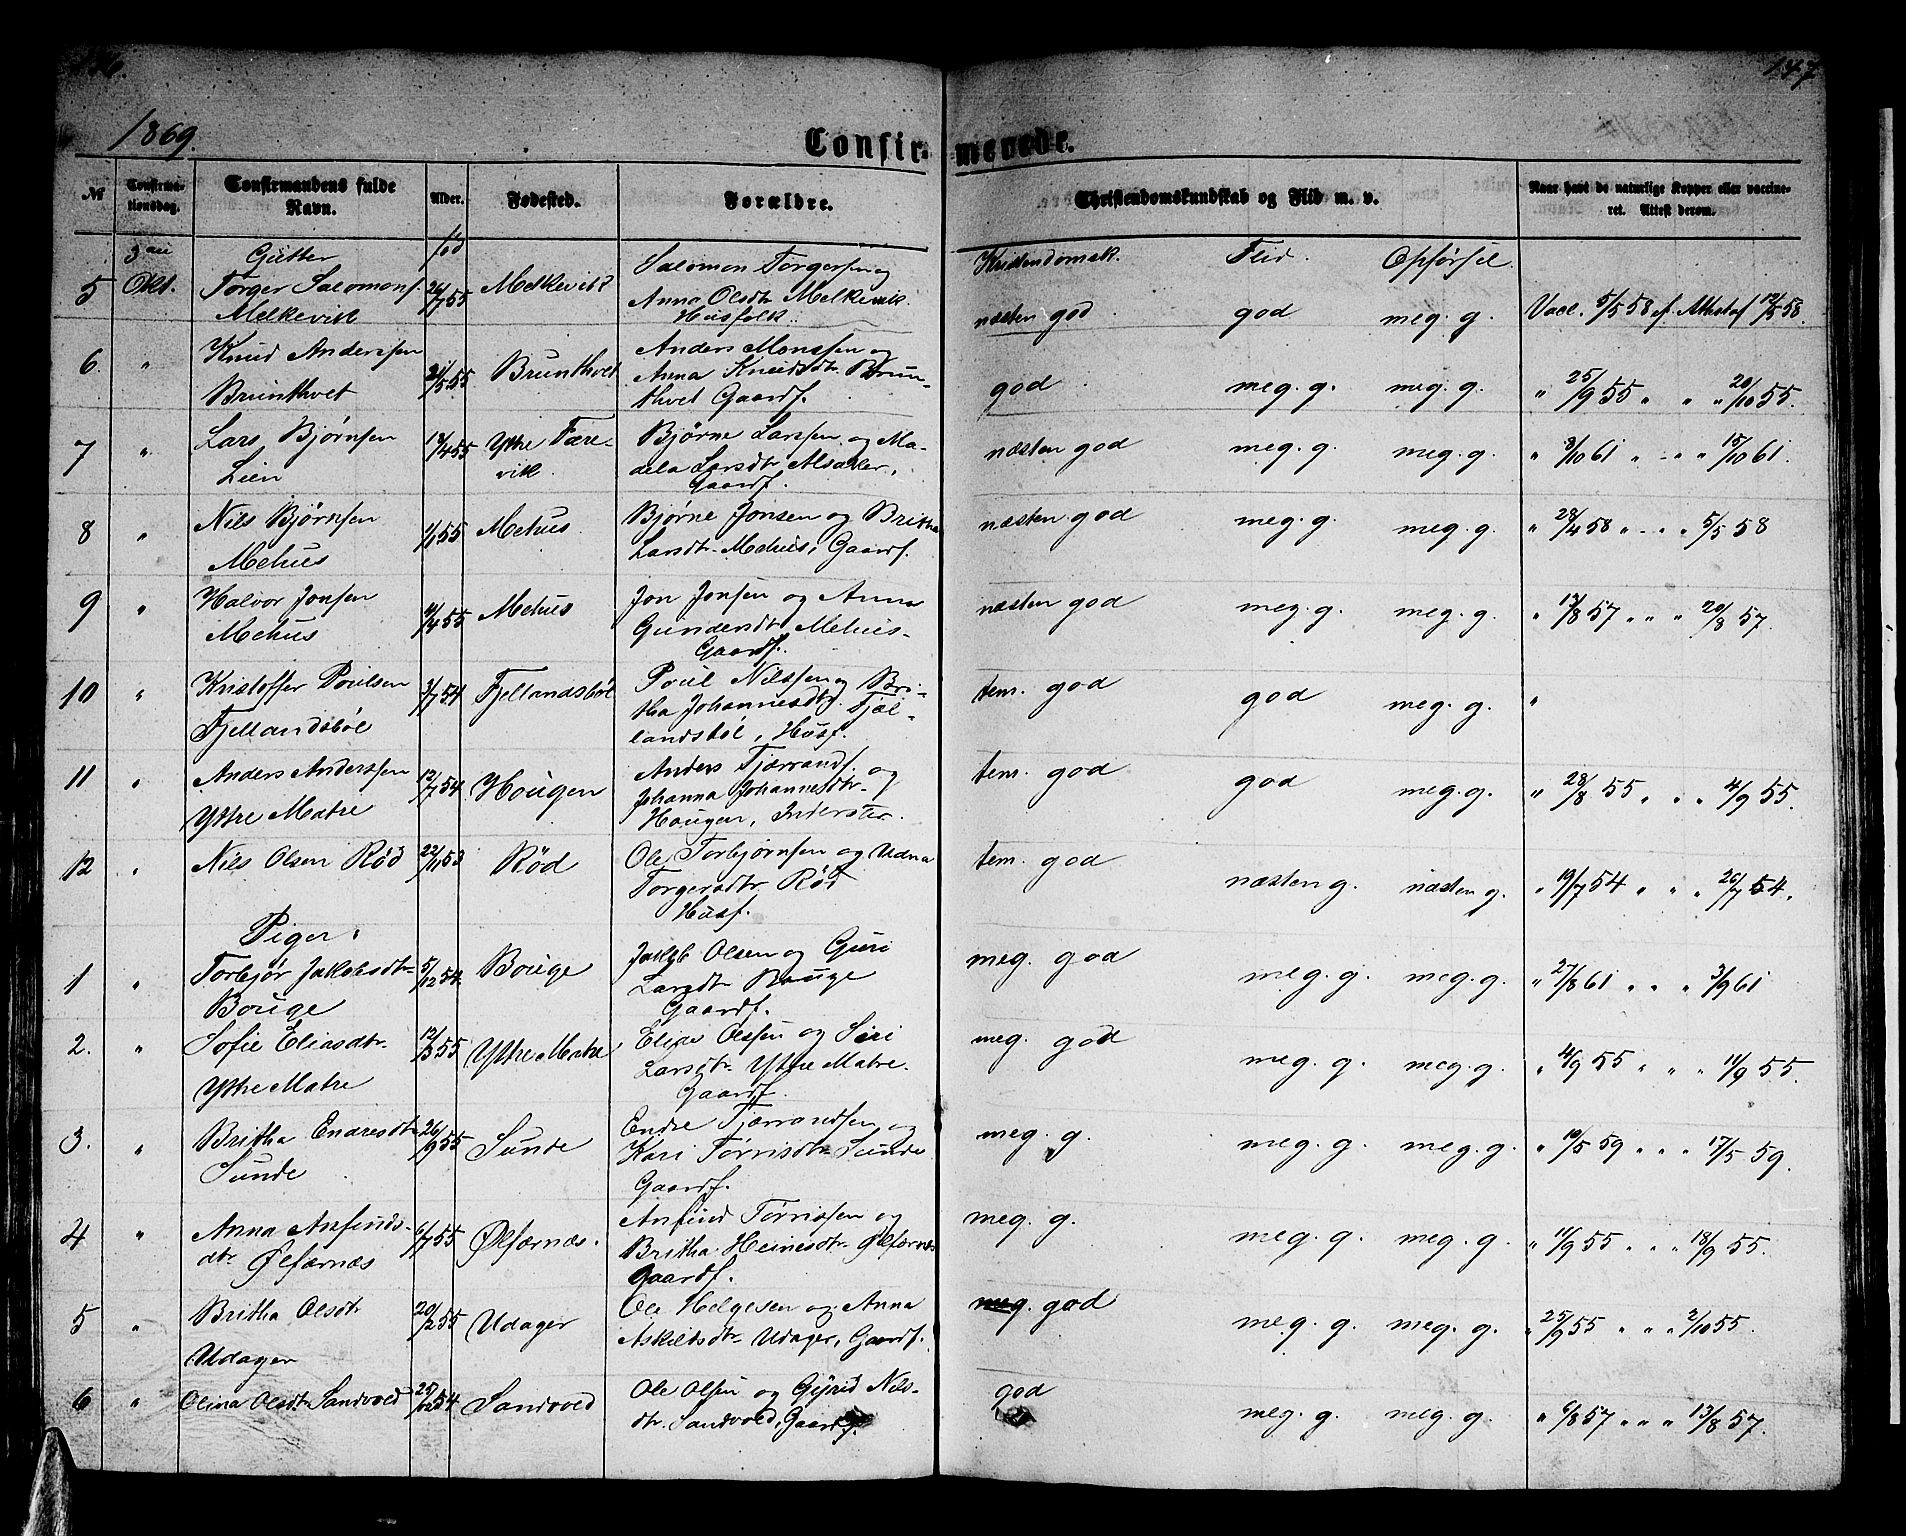 147
1869.
Confirmerede.
№
Confirmationsdag.
Confirmandens fulde Navn.
Alder.
Fødested.
Forældre.
Christendomskundskab og Flid m. v.
Naar havt de naturlige Kopper eller vaccineret. Attest derom.
Gutter
fød
Kristendomsk.
Flid.
Opførsel.
5
3die Okt.
Torger Salomons.
Melkevik
26/7 55
Melkevik
Salomon Torgersen og
Anna Olsdtr Melkevik
Husfolk.
næsten god
god
meg. g.
Vacc. 5/5 58 ef. Attest af 12/5 58.
6.
"
Knud Anderssen
Brunthvet
21/5 55
Brunthvet
Anders Monssen og
Anna Knudsdtr. Brun-
thvet Gaardf.
god
meg. g.
meg. g.
" 25/9 55 " " " 20/10 55.
7
"
Lars Bjørnsen
Lien
18/4 55
Ytre Fære-
vik
Bjørne Larssen og Ma-
dela Larsdtr Alsaker,
Gaardf.
næsten god
meg. g.
meg. g.
" 8/10 61 " - " " 15/10 61.
8
"
Nils Bjørnsen
Mehus
1/1 55
Mehus
Bjørne Jonsen og Britha
Larsdtr. Mehus, Gaardf.
næsten god
meg. g.
meg. g.
" 28/4 58 " - " " 5/5 58
9
"
Halvor Jonsen
Mehus
11/4 55
Mehus
Jon Jonsen og Anna
Gundersdtr Mehus
Gaardf.
næsten god
meg. g.
meg. g.
" 13/8 57 " " " 20/8 57.
10
"
Kristoffer Poulsen
Fjellandsbøl
3/7 54
Fjellandsbøl
Poul Nilssen og Bri-
tha Johannesdtr. Fjæl-
landsbøl, Husf.
tem. god
god
meg. g.
"
11
"
Anders Anderssen
Ytre Matre
12/7 54
Hougen
Anders Tjærrandf. og
Johanna Johannesdtr.
Hougen, Inderster.
tem. god
god
meg. g.
" 28/8 55 " " " 4/9 55.
12
"
Nils Olsen Rød
22/11 53
Rød
Ole Torbjørnsen og Udna
Torgersdtr Rød
Husf.
tem. god
næsten g.
næsten g.
" 19/7 54 " " " 26/7 54.
Piger.
1
"
Torbjør Jakobsdtr
Bouge
5/12 54
Bouge
Jakob Olsen og Guri
Larsdtr Bouge
Gaardf.
meg. god
meg. g.
meg. g.
" 27/8 61 " " " 3/9 61
2.
"
Sofie Eliasdtr.
Ytre Matre
12/3 55
Ytre Matre
Elias Olssen og Siri
Larsdtr. Ytre Matre.
Gaardf.
meg. god
meg. g.
meg. g.
" 4/9 55 " " " 11/9 55.
3.
"
Britha Endresdtr
Sunde
26/9 55
Sunde
Endre Tjærrandsen og
Kari Tørrisdtr Sunde
Gaardf.
meg. g.
meg. g.
meg. g.
" 10/5 59 " " " 17/5 59.
4
"
Anna Anfinds-
dtr. Ølfærnæs
6/7 55
Ølfærnæs.
Anfind Tørrissen og
Britha Heinesdtr. Ølfærnæs
Gaardf.
meg. g.
meg. g.
meg. g.
" 11/9 55 " " " 18/9 55.
5
"
Britha Olsdtr
Udager
20/2 55
Udager
Ole Helgesen og Anna
Askildsdtr Udager, Gaardf.
meg. god
meg. g.
meg. g.
" 25/9 55 " " " 2/10 55.
6
"
Olina Olsdtr Sandvold
25/12 54
Sandvold
Ole Olsen og Gyrid Nils-
dtr. Sandvold, Gaardf.
god
meg. g.
meg. g.
" 6/8 57 " " " 13/8 57.